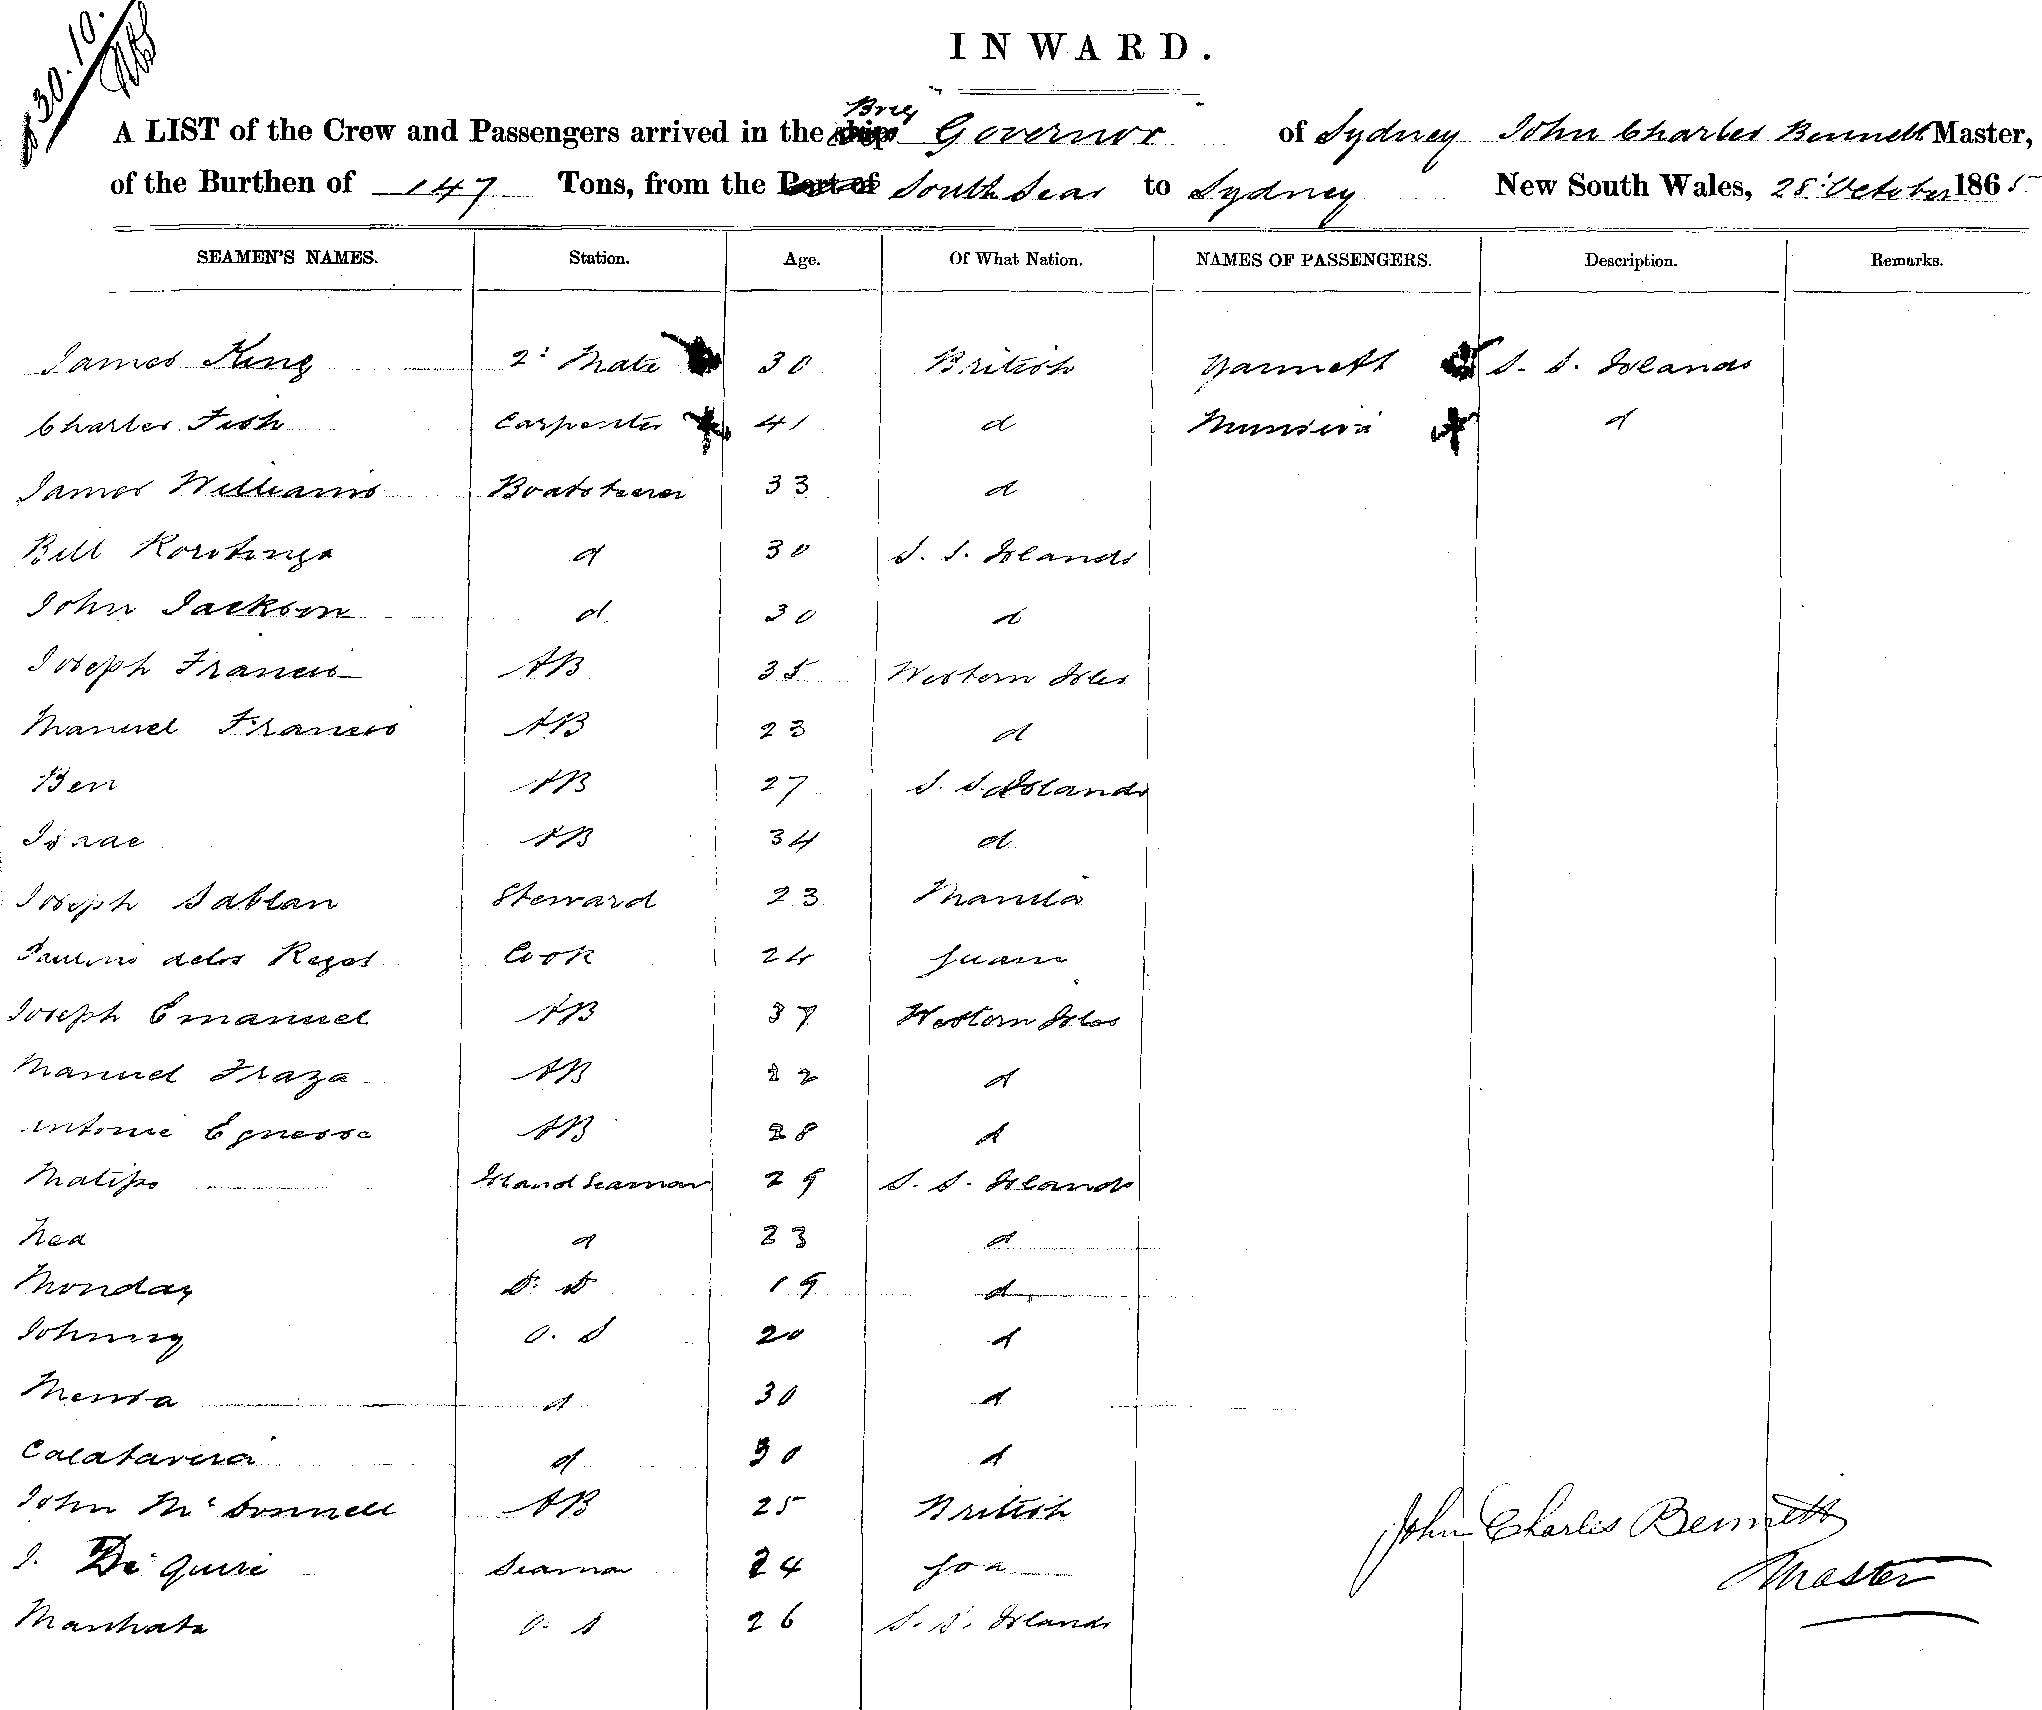 30.10.
INWARD.
A LIST of the Crew and Passengers arrived in the Brig Governor of Sydney John Charles Bennett Master,
of the Burthen of 147 Tons, from the Port of South Seas to Sydney New South Wales, 28 October 1865
SEAMEN'S NAMES. Station. Age. Of What Nation. NAMES OF PASSENGERS. Description. Remarks.
James King 2d Mate 30 British S. S. Islands
Charles Fish Carpenter 41 d d
James Williams Boatsteerer 33 d
Bill Rorotonga d 30 S. S. Islands
John Jackson d 30 d
Joseph Francis AB 35 Western Isles
Manuel Francis AB 23 d
Ben AB 27 S. S. Islands
Israe AB 34 d
Joseph Sablan Steward 23 Manila
Paulino delos Reyes Cook 24 Guam
Joseph Emanuel AB 37 Western Isles
Manuel Fraza AB 22 d
Antonie AB 28 d
Matipo Island Seaman 29 S. S. Islands
Ned d 23 d
Monday 19 d
Johnny O. S 20 d
Mensa d 30 d
Calatavera d 30 d
John McDonnell AB 25 British
J. De Quire Seaman 24 Goa
O. S 26 S. S. Islands
John Charles Bennett
Master